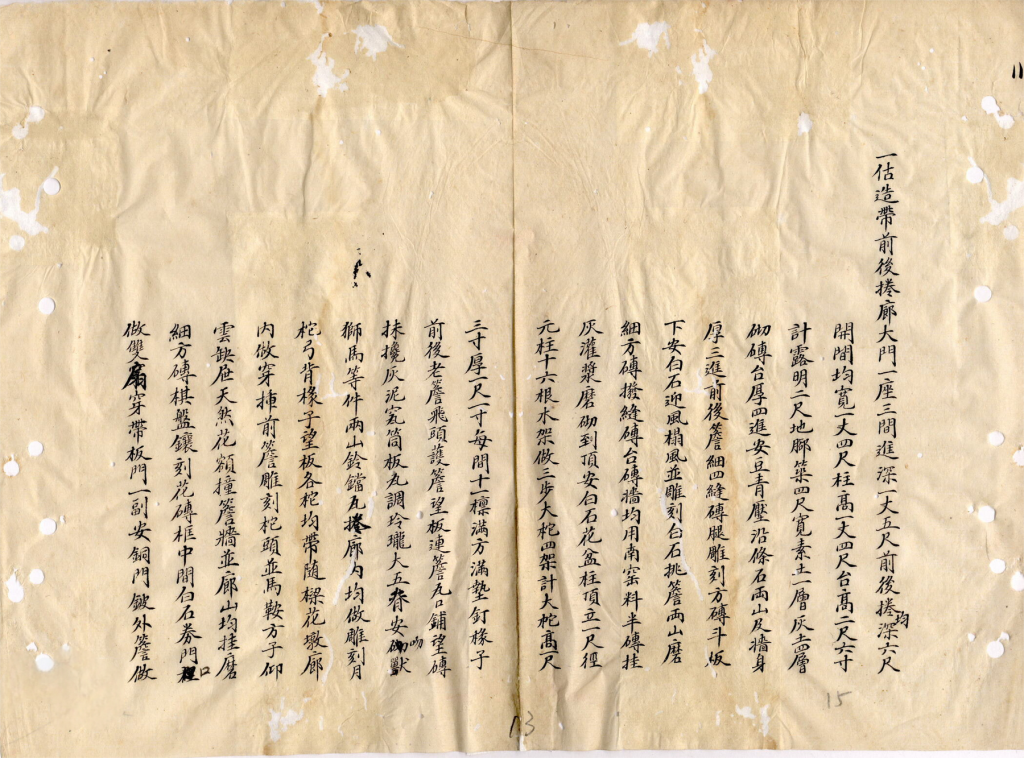 一估造帶前後捲廊大門一座三間進深一丈五尺前後捲均深六尺
開間均寬一丈四尺柱高一丈四尺台高二尺六寸
計露明二尺地腳築四尺寬素土一層灰土四層
砌磚台厚四進安豆青壓沿條石両山及牆身
厚三進前後簷細四縫磚腿雕刻方磚斗板
下安白石迎風榻風並雕刻白石挑簷両山磨
細方磚撥縫磚台磚牆均用南窑料半磚挂
灰灌漿磨砌到頂安白石花盆柱頂立一尺徑
元柱十六根木架做三步大柁四架計大柁高一尺
三寸厚一尺一寸每間十一檁滿方滿墊釘椽子
前後老簷飛頭護簷望板連簷瓦口鋪望磚
抹攙灰泥宽筒板瓦調玲瓏大五脊安吻獸
獅馬等件両山鈴鐺瓦捲廊內均做雕刻月
柁弓背椽子望板各柁均帶随樑花墩廊
內做穿揷前簷雕刻柁頭並馬鞍方子仰
雲天然花額撞簷牆並廊山均挂磨
細方磚棋盤鑲刻花磚框中間白石券門口
做雙扇穿帶板門一副安銅門鈸外簷做
13
15